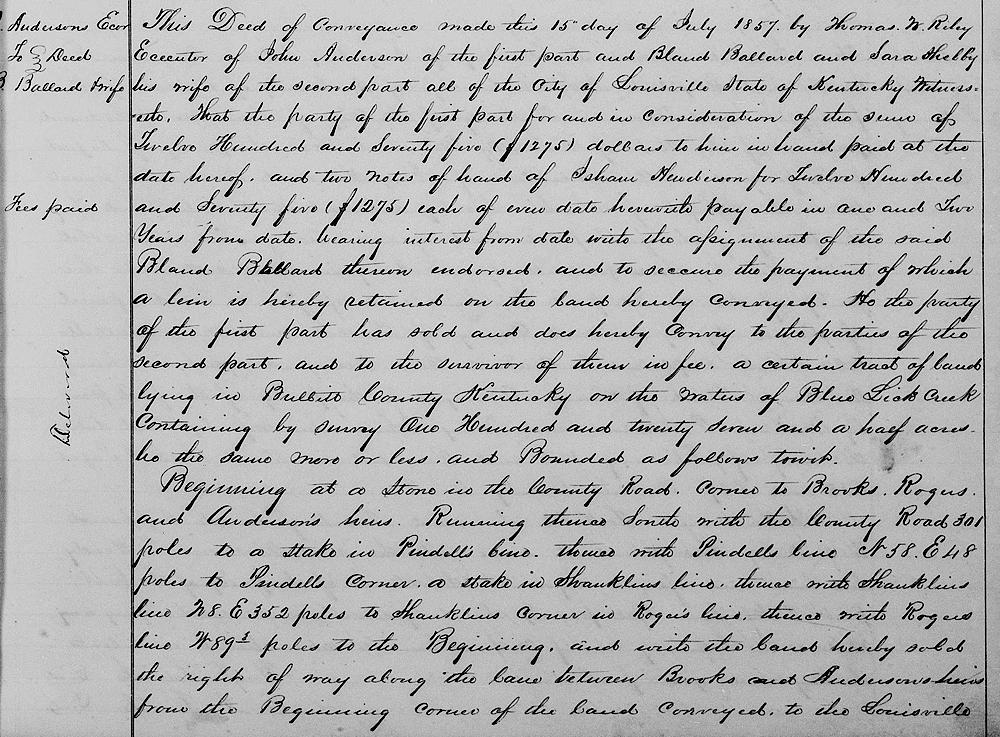 Andersons Ecor
To Deed
B Ballard & wife
Fees paid
Delivered
This Deed of Conveyance made this 15" day of July 1857. by Thomas. W. Riley
Ececutor of John Anderson of the first part and Bland Ballard and Sara Shelby
his wife of the second part all of the City of Louisville State of Kentucky Witness-
eth, That the party of the first part for and in Consideration of the sum of
Twelve Hundred and Seventy five ($1275) dollars to him in hand paid at the
date hereof. and two notes of hand of Isham Henderson for Twelve Hundred
and Seventy five ($1275) each of even date herewith payable in one and Two
Years from date. bearing interest from date with the assignment of the said
Bland Ballard thereon endorsed. and to seccure the payment of which
a lein is hereby retained on the land hereby conveyed. He the party
of the first part has sold and does hereby Convey to the parties of the
second part. and to the survivor of them in fee. a certain tract of land
lying in Bullitt County Kentucky on the waters of Blue Lick Creek
Containing by survey One Hundred and twenty seven and a half acres.
be the same more or less. and Bounded as follows towit.
Beginning at a Stone in the County Road. Corner to Brooks. Rogers.
and Anderson's heirs. Running thence South with the County Road 301
poles to a stake in Pindell's line. thence with Pindells line N 58. E 48
poles to Pindells Corner. a stake in Shanklins line. thence with Shanklins
line N 8. E 352 poles to Shanklins Corner in Roger's line. thence with Rogers
line W 89 3 poles to the Beginning. and with the land hereby sold
the right of way along the lane between Brooks and Andersons heirs
from the Beginning Corner of the land Conveyed. to the Louisville